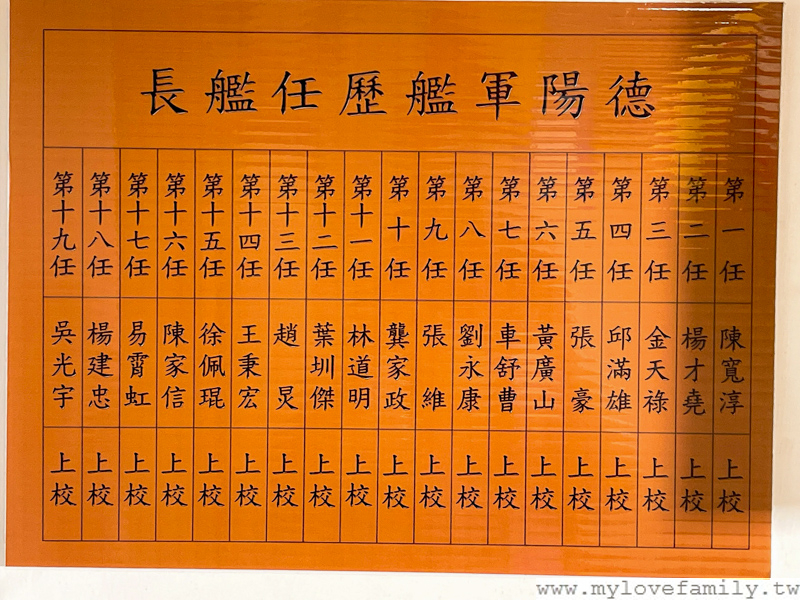 德陽軍艦歷任艦長
第一任 陳寬淳 上校
第二任 楊才堯 上校
第三任 金天祿 上校
第四任 邱滿雄 上校
第五任 張豪 上校
第六任 黃廣山 上校
第七任 車舒曹 上校
第八任 劉永康 上校
第九任 張維 上校
第十任 龔家政 上校
第十一任 林道明 上校
第十二任 葉圳傑 上校
第十三任 趙炅 上校
第十四任 王秉宏 上校
第十五任 徐佩琨 上校
第十六任 陳家信 上校
第十七任 易霄虹 上校
第十八任 楊建忠 上校
第十九任 吳光宇 上校
www.mylovefamily.tw